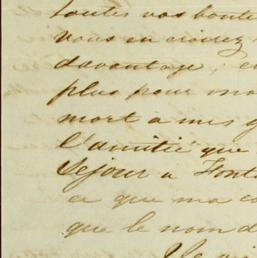 toutes vos bonté
vous en croirez
davantage, e
plus pour mo
mort à mes g
l'amitié que
Séjour à Font
ce que ma co
que le nom d